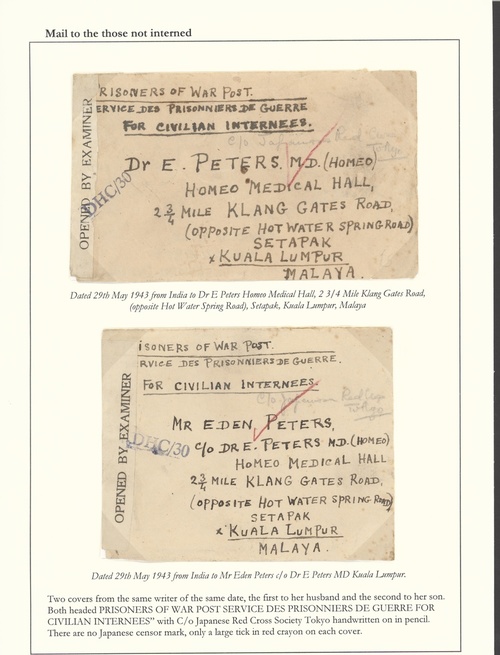 Mail to the those not interned
RISONERS OF WAR POST.
ERVICE DES PRISONNIERS DE GUERRE
FOR CIVILIAN INTERNEES.
C/o Japanese Red Cross
Tokyo
Dr E. PETERS, M.D. (HOMEO)
HOMEO MEDICAL HALL,
2 3/4 MILE KLANG GATES ROAD,
(OPPOSITE HOT WATER SPRING ROAD)
SETAPAK
x KUALA LUMPUR
MALAYA.
OPENED BY EXAMINER
DHC/30
Dated 29th May 1943 from India to Dr E Peters Homeo Medical Hall, 2 3/4 Mile Klang Gates Road,
(opposite Hot Water Spring Road), Setapak, Kuala Lumpur, Malaya
ISONERS OF WAR POST.
RVICE DES PRISONNIERS DE GUERRE.
FOR CIVILIAN INTERNEES.
C/o Japanese Red Cross
Tokyo
MR EDEN PETERS,
C/O DR E. PETERS M.D. (HOMEO)
HOMEO MEDICAL HALL
2 3/4 MILE KLANG GATES ROAD,
(OPPOSITE HOT WATER SPRING ROAD)
SETAPAK
x KUALA LUMPUR
MALAYA.
OPENED BY EXAMINER
DHC/30
Dated 29th May 1943 from India to Mr Eden Peters c/o Dr E Peters MD Kuala Lumpur.
Two covers from the same writer of the same date, the first to her husband and the second to her son.
Both headed PRISONERS OF WAR POST SERVICE DES PRISONNIERS DE GUERRE FOR
CIVILIAN INTERNEES" with C/o Japanese Red Cross Society Tokyo handwritten on in pencil.
There are no Japanese censor mark, only a large tick in red crayon on each cover.